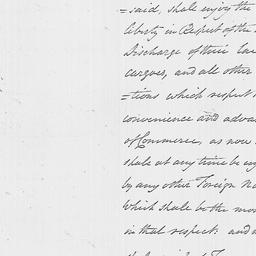 =said, shall enjoy the
liberty in Respect of the
Discharge of their
cargoes, and all other
=tions which respect
convenience and
of Commerce, as now
shall at any time be
by any other Foreign
Which shall be the
in that respect: and